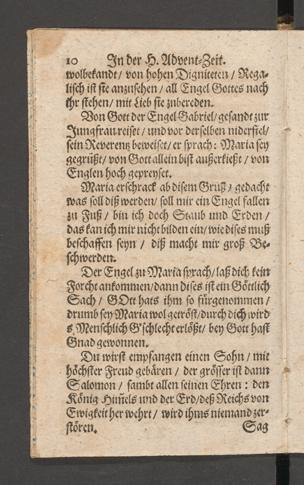 10 In der H. Advent-Zeit.
wolbekandt / von hohen Digniteten / Rega-
lisch ist sie anzusehen / all Engel Gottes nach
ihr stehen / mit Lieb sie zubereden.
Von Gott der Engel Gabriel / gesandt zur
Jungfrau reiset / und vor derselben niderfiel /
sein Reverenz beweiset / er sprach: Maria sey
gegrüßt / von Gott allein bist außerkießt / von
Englen hoch gepreyset.
Maria erschrack ab disem Gruß / gedacht
was soll diß werden / soll mir ein Engel fallen
zu Fuß / bin ich doch Staub und Erden /
das kan ich mir nicht bilden ein / wie dises muß
beschaffen seyn / diß macht mir groß Be-
schwerden.
Der Engel zu Maria sprach / laß dich kein
Forcht ankommen / dann dises ist ein Götlich
Sach / GOtt hats ihm so fürgenommen /
drumb sey Maria wol getröst / durch dich wird
s'Menschlich G'schlecht erlößt / bey Gott hast
Gnad gewonnen.
Du wirst empfangen einen Sohn / mit
höchster Freud gebären / der grösser ist dann
Salomon / sambt allen seinen Ehren : den
König Him̃els und der Erd / deß Reichs von
Ewigkeit her wehrt / wird ihms niemand zer-
stören.
Sag